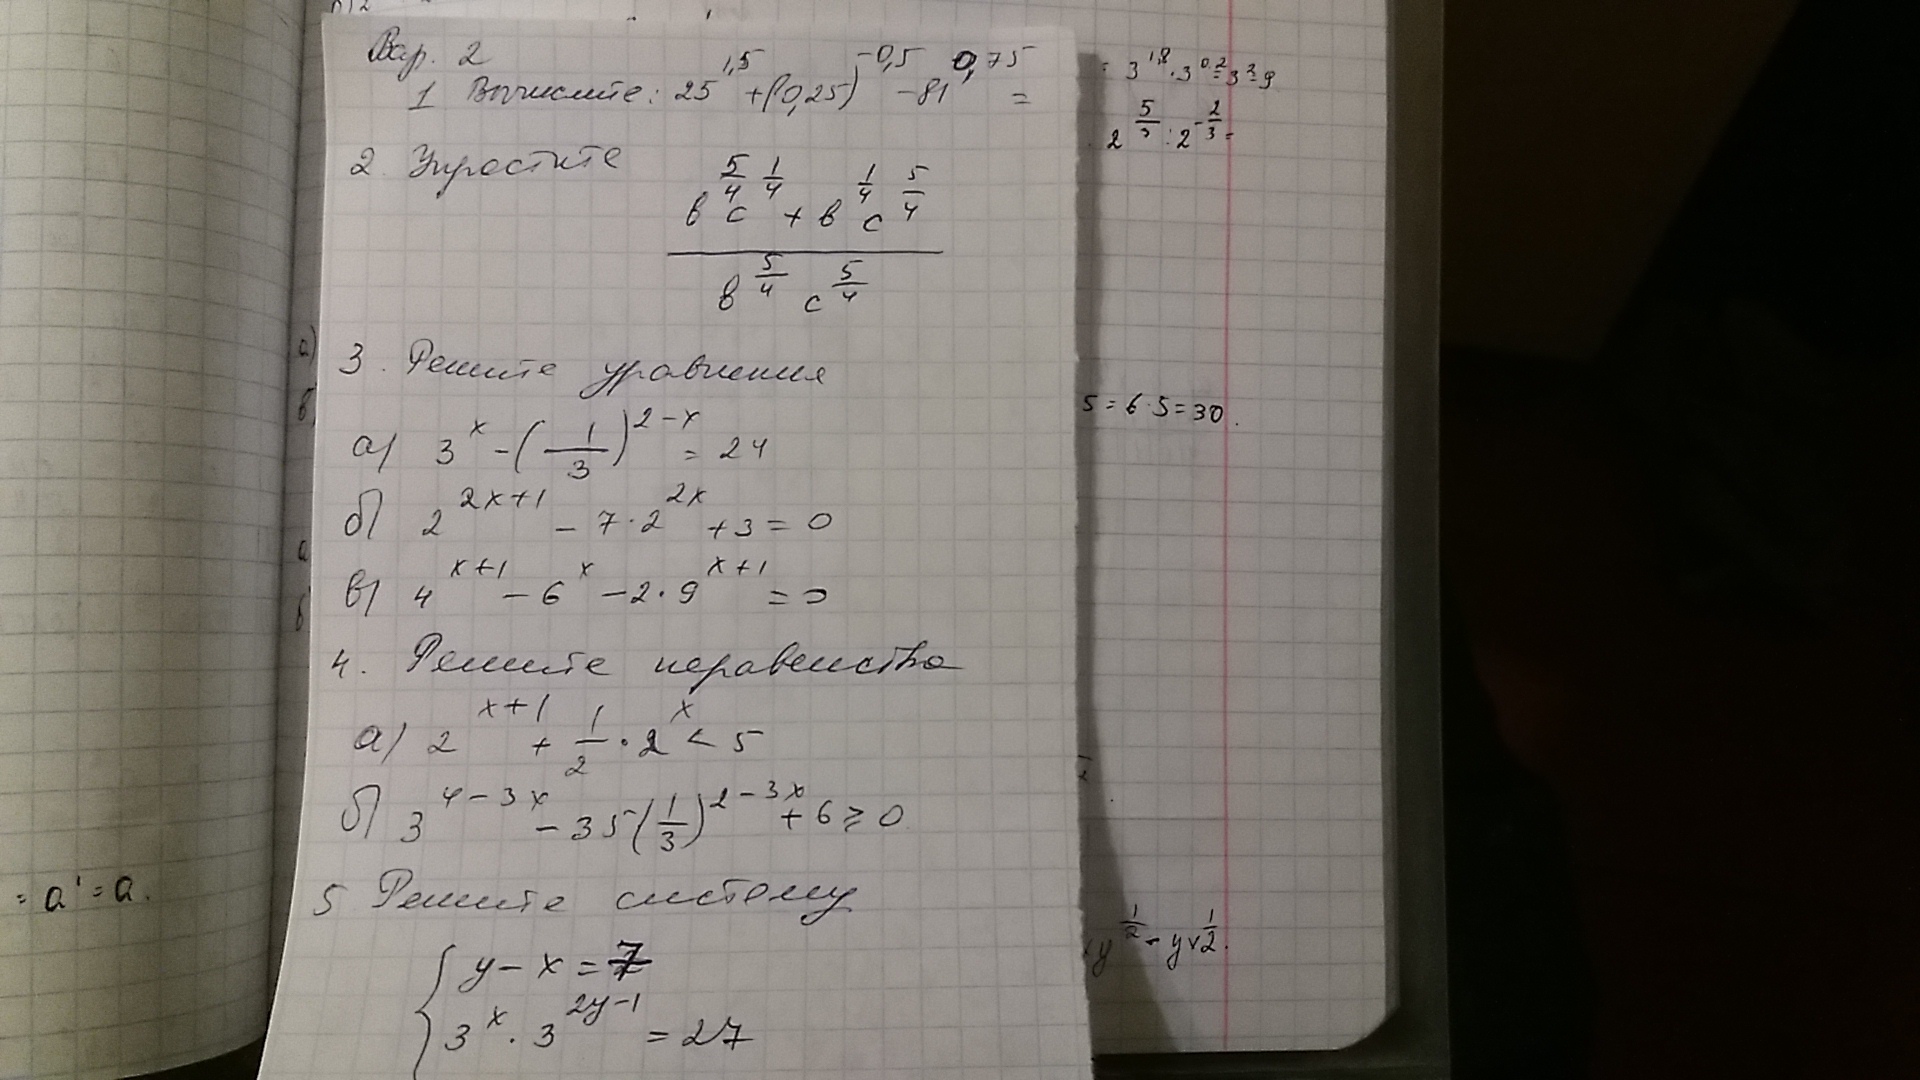 Вар. 2
1 Вычислите: 25^{1,5} + (0,25)^{-0,5} - 81^{0,75} =
2. Упростите
\frac{в^{\frac{5}{4}} с^{\frac{1}{4}} + в^{\frac{1}{4}} с^{\frac{5}{4}}}{в^{\frac{5}{4}} с^{\frac{5}{4}}}
3. Решите уравнения
а) 3^x - (\frac{1}{3})^{2-x} = 24
б) 2^{2x+1} - 7·2^{2x} + 3 = 0
в) 4^{x+1} - 6^x - 2·9^{x+1} = 0
4. Решите неравенства
а) 2^{x+1} + \frac{1}{2}·2^x < 5
б) 3^{4-3x} - 35(\frac{1}{3})^{2-3x} + 6 ≥ 0
5 Решите систему
y - x = 7
3^x · 3^{2y-1} = 27
= a^1 = a.
= 3^{1,8}·3^{0,2} = 3^2 = 9
5 = 6·5 = 30.
y^{\frac{1}{2}} - yx^{\frac{1}{2}}.